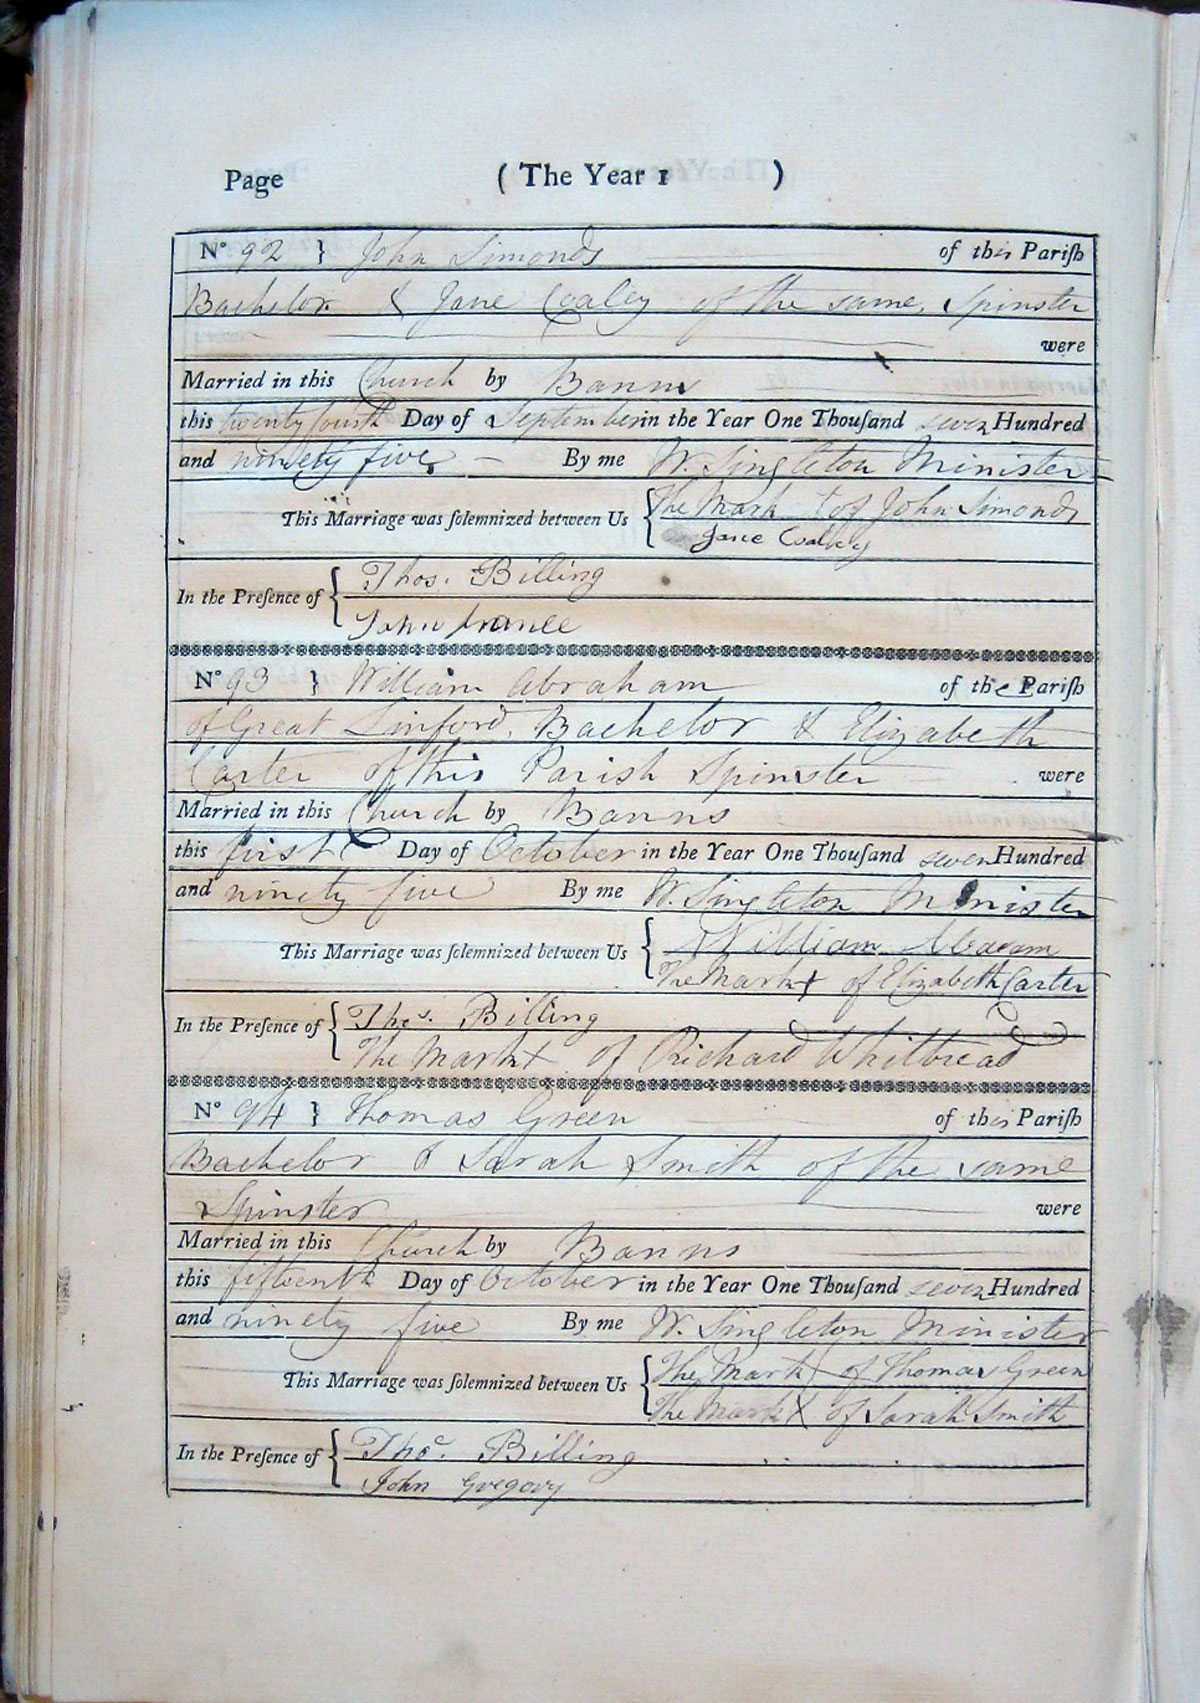 Page ( The Year 1 )
Nº 92 } John Simonds of this Pariſh
Bachelor & Jane Coaley of the same, Spinster
were
Married in this Church by Banns
this twenty fourth Day of September in the Year One Thouſand seven Hundred
and ninety five By me W. Singleton Minister
The Mark + of John Simonds
This Marriage was ſolemnized between Us {
Jane Coaley
Thos. Billing
In the Preſence of {
John
Nº 93 } William Abraham of the Pariſh
of Great Linford, Bachelor & Elizabeth
Carter of this Parish Spinster were
Married in this Church by Banns
this first Day of October in the Year One Thouſand seven Hundred
and ninety five By me W. Singleton Minister
William
This Marriage was ſolemnized between Us {
The Mark + of Elizabeth Carter
Thos. Billing
In the Preſence of {
The Mark X of Richard Whitbread
Nº 94 } Thomas Green of this Pariſh
Bachelor & Sarah Smith of the same
Spinster were
Married in this Church by Banns
this fifteenth Day of October in the Year One Thouſand seven Hundred
and ninety five By me W. Singleton Minister
The Mark X of Thomas Green
This Marriage was ſolemnized between Us {
The Mark X of Sarah Smith
Thos. Billing
In the Preſence of {
John Gregory